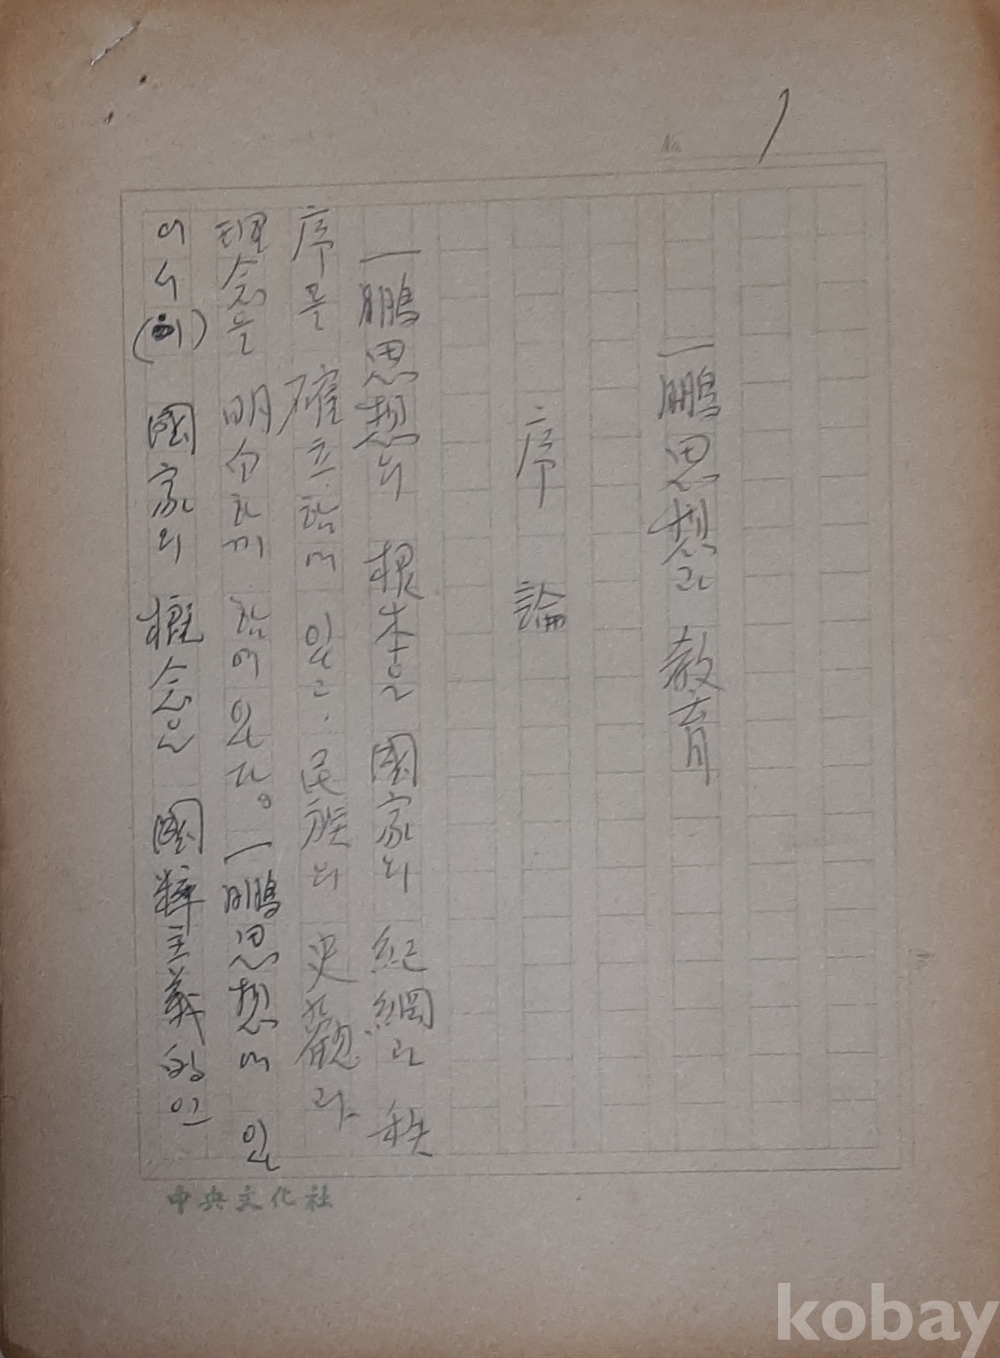 No. 1
一鵬思想과 教育
序論
一鵬思想의 根本은 國家의 紀綱과 秩
序를 確立함에 있고. 民族의 史觀과
理念을 明白하게 함에 있다。一鵬思想에 있
어서 國家의 槪念은 國粹主義的인
中央文化社
kobay